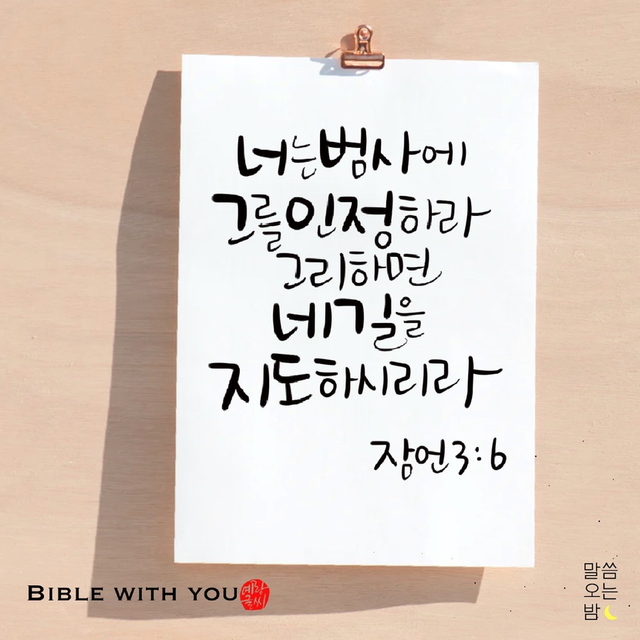 너는 범사에
그를 인정하라
그리하면
네 길을
지도하시리라
잠언 3:6
BIBLE WITH YOU
예랑
글씨
말씀
오는
밤